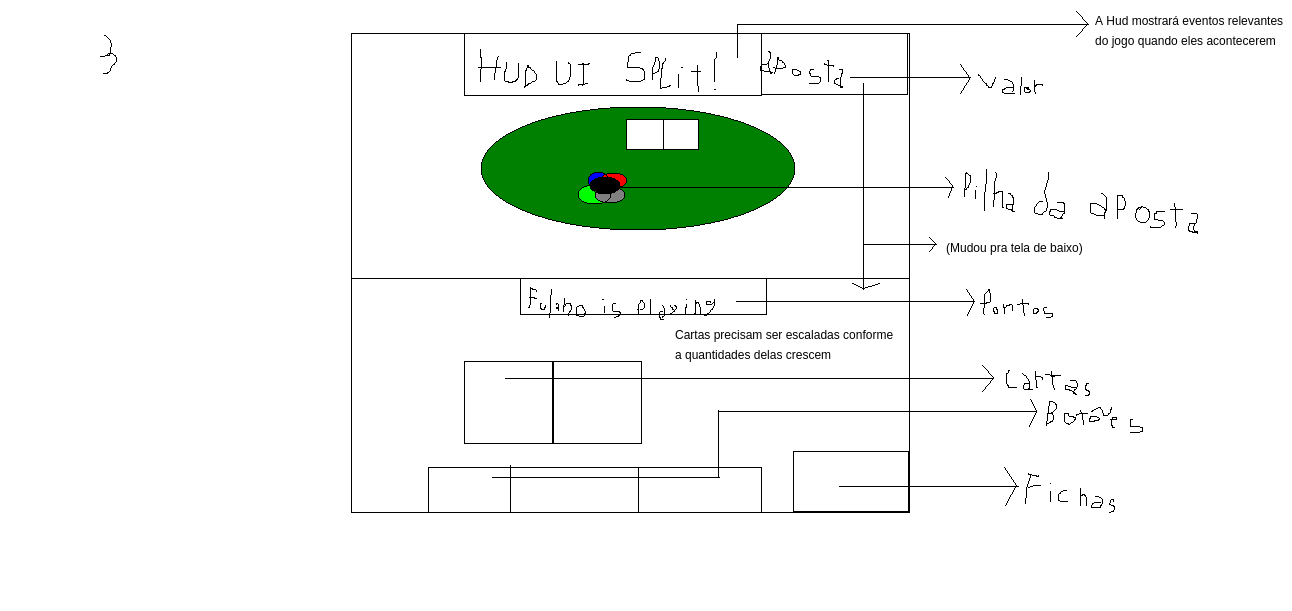 3
A Hud mostrará eventos relevantes
do jogo quando eles acontecerem
HUD UI Split!
aposta
valor
Pilha da aposta
(Mudou pra tela de baixo)
Fulano is playing
Pontos
Cartas precisam ser escaladas conforme
a quantidades delas crescem
Cartas
Botões
Fichas